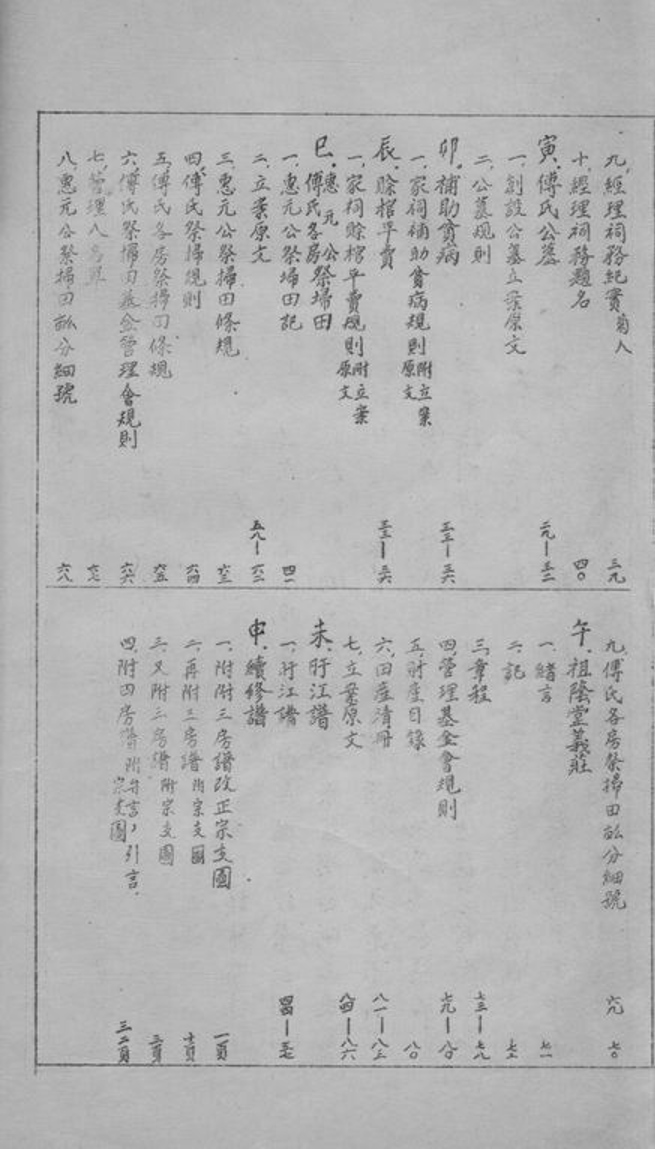 九、經理祠務紀實 三九
十、經理祠務題名 四〇
寅、傅氏公墓
一、創設公墓立案原文 二九—三二
二、公墓規則
卯、補助貧病
一、家祠補助貧病規則附立案原文 三三—三六
辰、賒棺平賣
一、家祠賒棺平賣規則附立案原文 三三—三六
巳、惠元公傅氏各房祭埽田
一、惠元公祭埽田記 四一
二、立案原文 五八—六二
三、惠元公祭掃田條規 六三
四、傅氏祭掃規則 六四
五、傅氏各房祭掃田條規 六五
六、傅氏祭掃田基金管理會規則 六六
七、管理人名單 六七
八、惠元公祭掃田畝分細號 六八
九、傅氏各房祭掃田畝分細號 六九 七〇
午、祖蔭堂義莊
一、緒言 七一
二、記 七二
三、章程 七三—七八
四、管理基金會規則 七九—八〇
五、財產目錄 八〇
六、田產清冊 八一—八三
七、立案原文 八四—八六
未、盱江譜
一、盱江譜
申、續修譜
一、附附三房譜改正宗支圖 一頁
二、再附三房譜附宗支圖
三、又附三房譜附宗支圖 三頁
四、附四房譜附弁言，引言，宗支圖 三二頁